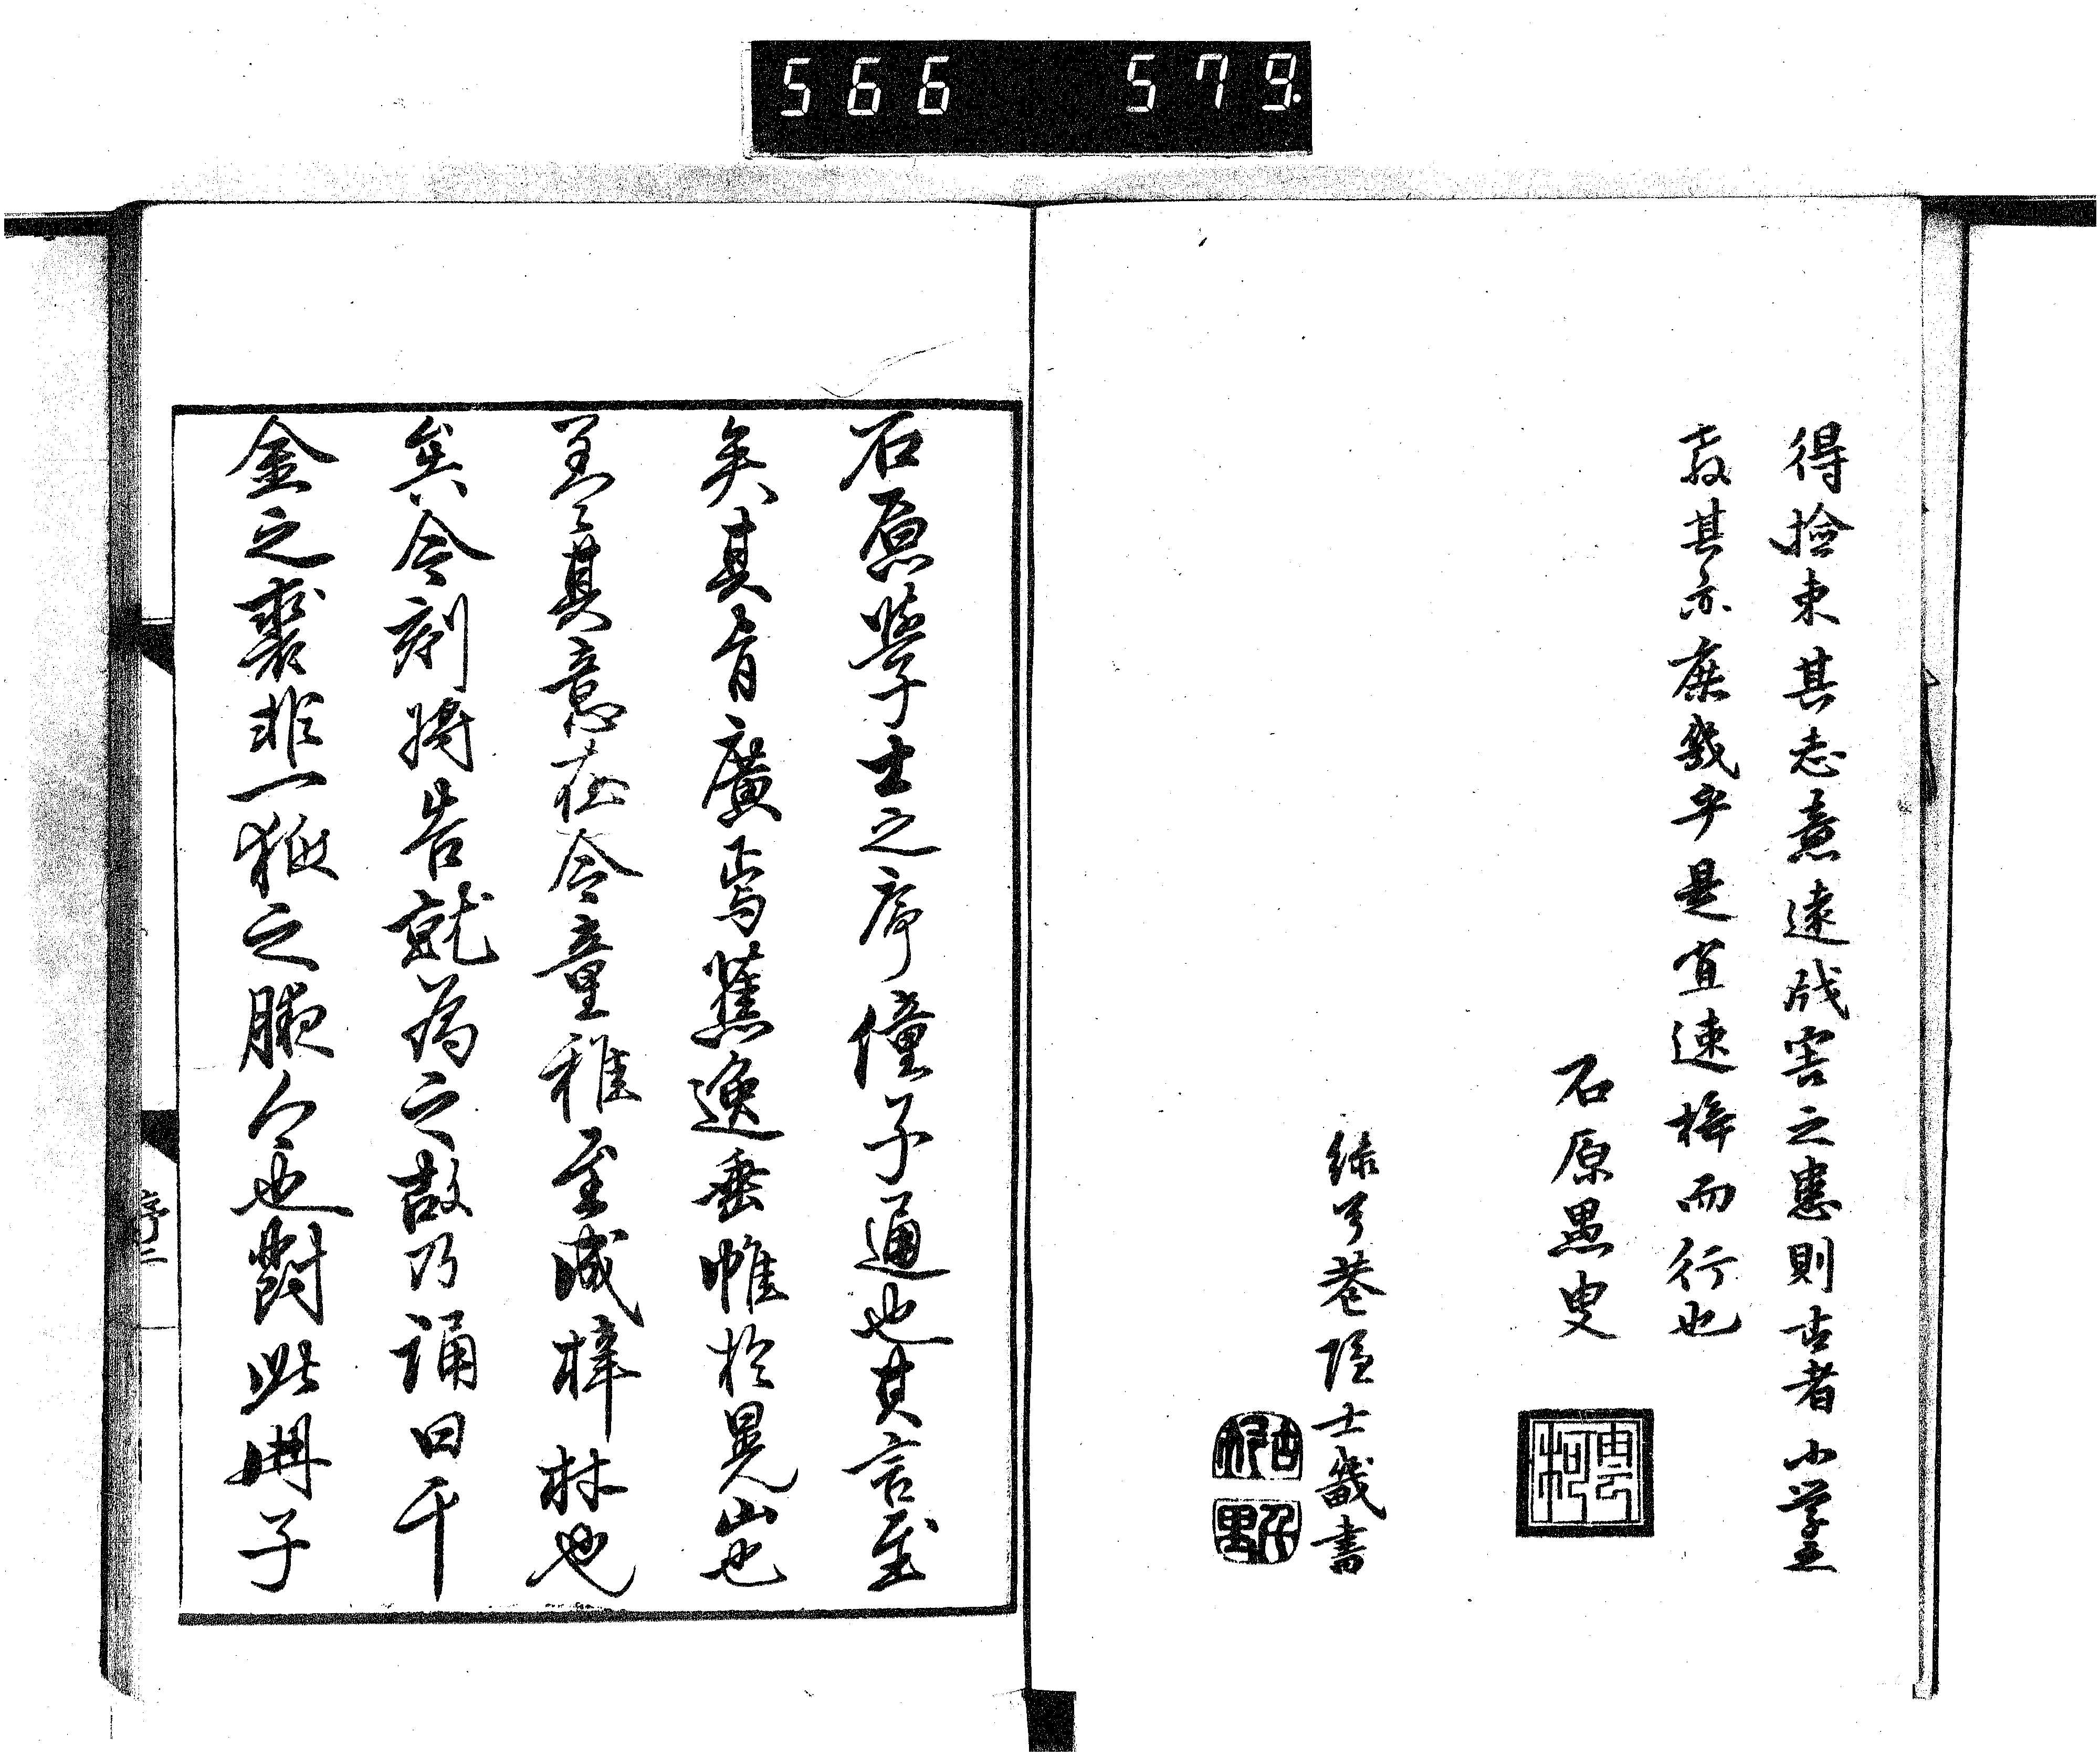 566 579
得撿束其志意遠戕害之患則古者小学之
教其亦庶幾乎是宜速梓而行也
石原愚叟
緑兮菴隠士畿書
石原學士之序僮子通也其言至
矣其旨廣焉蕉逸垂帷於晃山也
其意在令童稚至成梓材也
矣今刻将告就為之故乃誦曰千
金之裘非一狐之腋今也對此冊子
序二